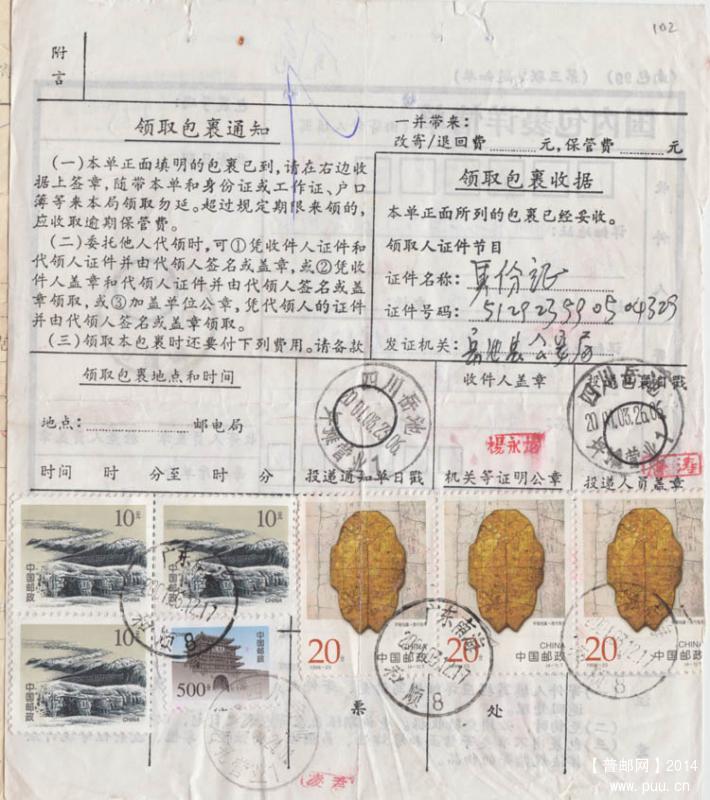 102
附
言
领取包裹通知
(一)本单正面填明的包裹已到,请在右边收
据上签章,随带本单和身份证或工作证、户口
簿等来本局领取勿延。超过规定期限来领的,
应收取逾期保管费。
(二)委托他人代领时,可①凭收件人证件和
代领人证件并由代领人签名或盖章,或②凭收
件人盖章和代领人证件并由代领人签名或盖
章领取,或③加盖单位公章,凭代领人的证件
并由代领人签名或盖章领取。
(三)领取本包裹时还要付下列费用。请各款
一并带来:
改寄/退回费 元,保管费 元
领取包裹收据
本单正面所列的包裹已经妥收。
领取人证件节目
证件名称: 身份证
证件号码: 512923590504329
发证机关: 岳池县公安局
领取包裹地点和时间
地点: 邮电局
时间 时 分至 时 分
投递通知单日戳
收件人盖章
机关等证明公章
投递包裹日戳
投递人员盖章
四川岳池
四川岳池
10元
中国邮政
CHINA
10元
中国邮政
CHINA
10元
中国邮政
CHINA
500分
中国邮政
20分
CHINA
中国邮政
20分
CHINA
中国邮政
20分
CHINA
中国邮政
广东南海
8
票 处
【普邮网】2014
www.puu.cn